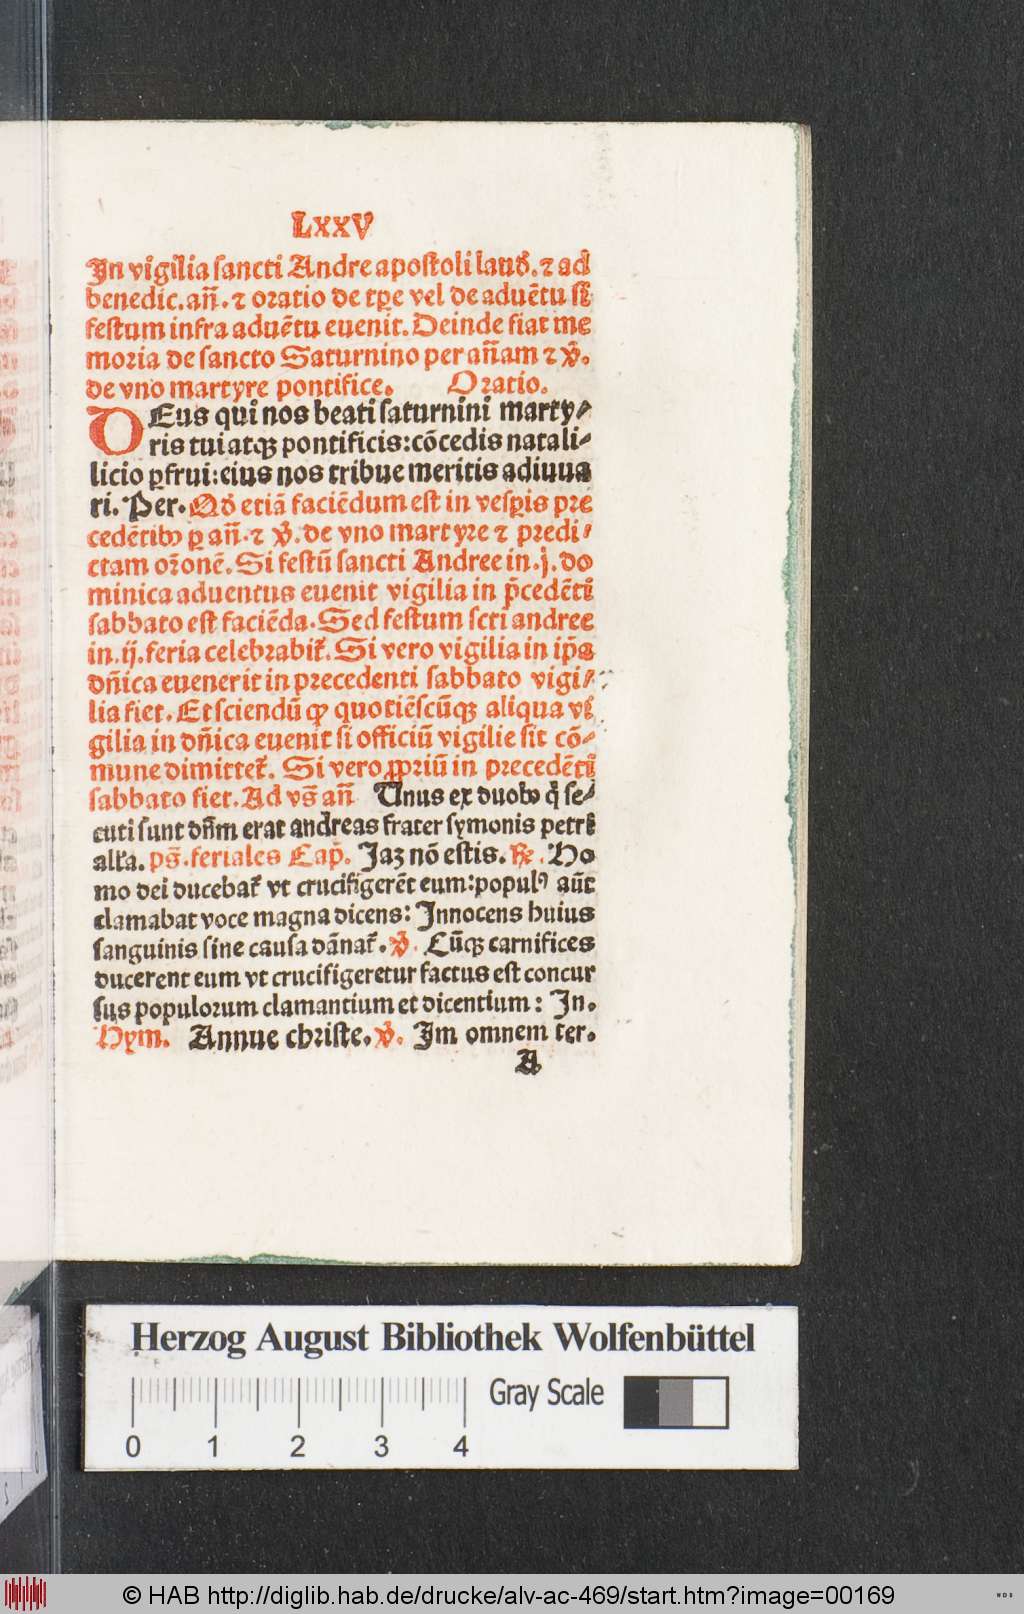 LxxV
In vigilia sancti Andree apostoli lauđ. ⁊ ad
benedic. an̄. ⁊ oratio de tp̄e vel de aduētu si
festum infra aduētu euenit. Deinde fiat me
moria de sancto Saturnino per an̄am ⁊ v̄.
de vno martyre pontifice. Oratio.
DEus qui nos beati saturnini marty⸗
ris tui atqꝫ pontificis: cōcedis natali⸗
licio ꝑfrui: eius nos tribue meritis adiuua
ri. Per. Qđ etiā faciēdum est in vesꝑis pre
cedētibꝰ ꝑ an̄. ⁊ v̄. de vno martyre ⁊ predi⸗
ctam or̄onē. Si festū sancti Andree in .j. do
minica aduentus euenit vigilia in p̄cedēti
sabbato est faciēda. Sed festum scti andree
in .ij. feria celebrabit̄. Si vero vigilia in ip̄a
dn̄ica euenerit in precedenti sabbato vigi⸗
lia fiet. Et sciendū ꝙ quotiēscūqꝫ aliqua vi
gilia in dn̄ica euenit si officiū vigilie sit cō⸗
mune dimittet̄. Si vero ꝓpriū in precedēti
sabbato fiet. Ad vs̄ an̄ Unus ex duobꝰ q̇ se⸗
cuti sunt dn̄m erat andreas frater symonis petri
all'a. ps̄. feriales Cap̄. Jaꝫ nō estis. ℟. Ho
mo dei ducebat̄ vt crucifigerēt eum: populꝰ aūt
clamabat voce magna dicens: Innocens huius
sanguinis sine causa dānat̄. v̄. Cūqꝫ carnifices
ducerent eum vt crucifigeretur factus est concur
sus populorum clamantium et dicentium: In.
Hym. Annue christe. v̄. Im omnem ter.
A
Herzog August Bibliothek Wolfenbüttel
Gray Scale
0 1 2 3 4
© HAB http://diglib.hab.de/drucke/alv-ac-469/start.htm?image=00169